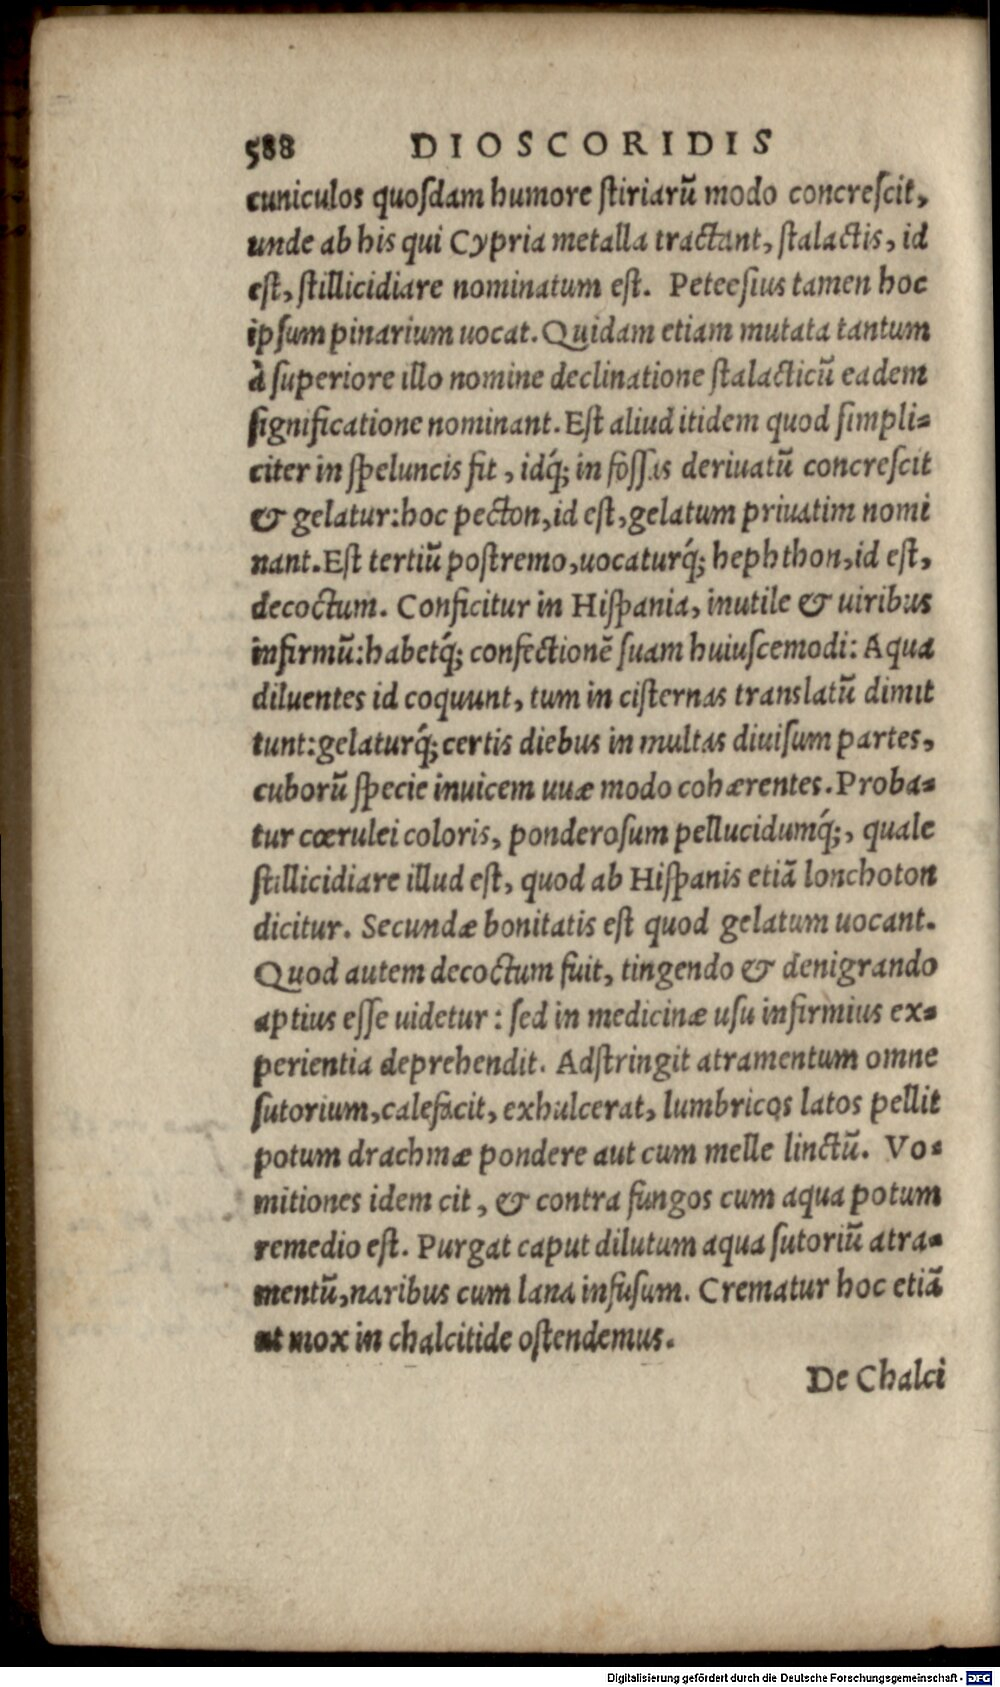 588 DIOSCORIDIS
cuniculos quoſdam humore ſtiriarũ modo concreſcit,
unde ab his qui Cypria metalla tractant, ſtalactis, id
eſt, ſtillicidiare nominatum eſt. Peteeſius tamen hoc
ipſum pinarium uocat. Quidam etiam mutata tantum
à ſuperiore illo nomine declinatione ſtalacticũ eadem
ſignificatione nominant. Eſt aliud itidem quod ſimpli-
citer in ſpeluncis fit, idq́; in foſſas deriuatũ concreſcit
& gelatur: hoc pecton, id eſt, gelatum priuatim nomi
nant. Eſt tertiũ poſtremo, uocaturq́; hephthon, id eſt,
decoctum. Conficitur in Hiſpania, inutile & uiribus
infirmũ: habetq́; confectionẽ ſuam huiuſcemodi: Aqua
diluentes id coquunt, tum in ciſternas translatũ dimit
tunt: gelaturq́; certis diebus in multas diuiſum partes,
cuborũ ſpecie inuicem uuæ modo cohærentes. Proba-
tur cœrulei coloris, ponderoſum pellucidumq́;, quale
ſtillicidiare illud eſt, quod ab Hiſpanis etiã lonchoton
dicitur. Secundæ bonitatis eſt quod gelatum uocant.
Quod autem decoctum fuit, tingendo & denigrando
aptius eſſe uidetur: ſed in medicinæ uſu infirmius ex-
perientia deprehendit. Adſtringit atramentum omne
ſutorium, calefacit, exhulcerat, lumbricos latos pellit
potum drachmæ pondere aut cum melle linctũ. Vo-
mitiones idem cit, & contra fungos cum aqua potum
remedio eſt. Purgat caput dilutum aqua ſutoriũ atra-
mentũ, naribus cum lana infuſum. Crematur hoc etiã
ut mox in chalcitide oſtendemus.
De Chalci
Digitalisierung gefördert durch die Deutsche Forschungsgemeinschaft - DFG